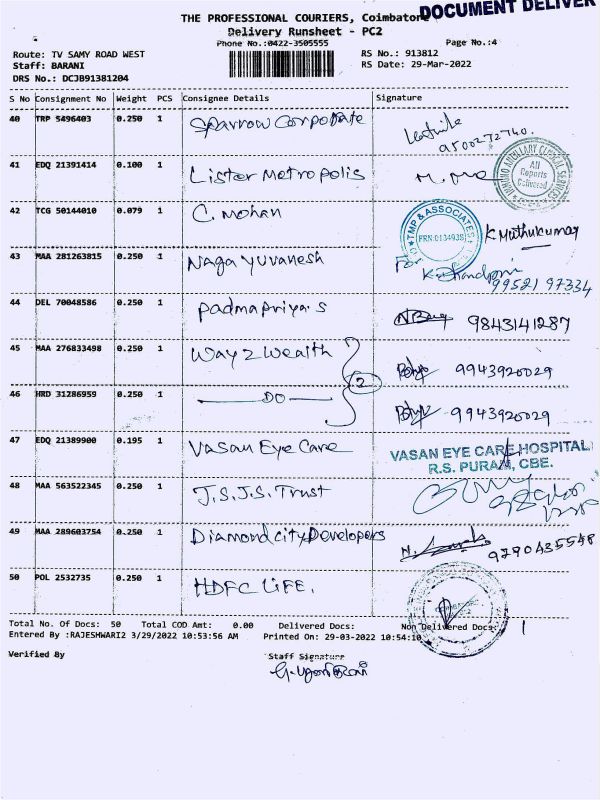 DOCUMENT DELIVER
THE PROFESSIONAL COURIERS, Coimbatore
Delivery Runsheet - PC2
Phone No.:0422-3505555
Page No.:4
Route: TV SAMY ROAD WEST
RS No.: 913812
Staff: BARANI
RS Date: 29-Mar-2022
DRS No.: DCJB91381204
S No Consignment No Weight PCS Consignee Details Signature
40 TRP 5496403 0.250 1 Sparrow Corporate
9500272740.
41 EDQ 21391414 0.100 1 Lister Metropolis
All Reports Delivered
42 TCG 50144010 0.079 1 C. Mohan
TMP & ASSOCIATES
FRN:013493S
K Muthukumar
43 MAA 281263815 0.250 1 Naga Yuvanesh
For
99521 97334
44 DEL 70048586 0.250 1 Padmapriya.S 9843141287
45 MAA 276833498 0.250 1 Way 2 Wealth 9943920029
2
46 HRD 31286959 0.250 1 DO 9943920029
47 EDQ 21389900 0.195 1 Vasan Eye Care
VASAN EYE CARE HOSPITAL
R.S. PURAM, CBE.
48 MAA 563522345 0.250 1 J.S.J.S. Trust
49 MAA 289603754 0.250 1 Diamond city Developers
9790435548
50 POL 2532735 0.250 1 HDFC LIFE.
Total No. Of Docs: 50 Total COD Amt: 0.00 Delivered Docs: Non Delivered Docs: 1
Entered By :RAJESHWARI2 3/29/2022 10:53:56 AM Printed On: 29-03-2022 10:54:10
Verified By Staff Signature